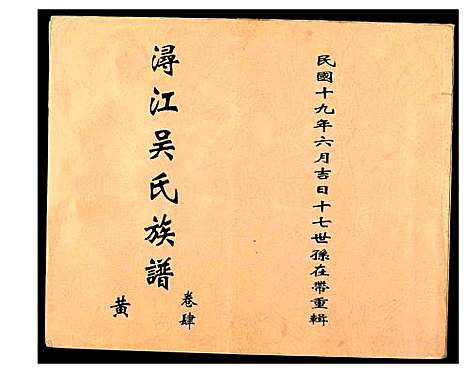 民國十九年六月吉日十七世孫在帶重輯
潯江吴氏族譜
卷肆
黄